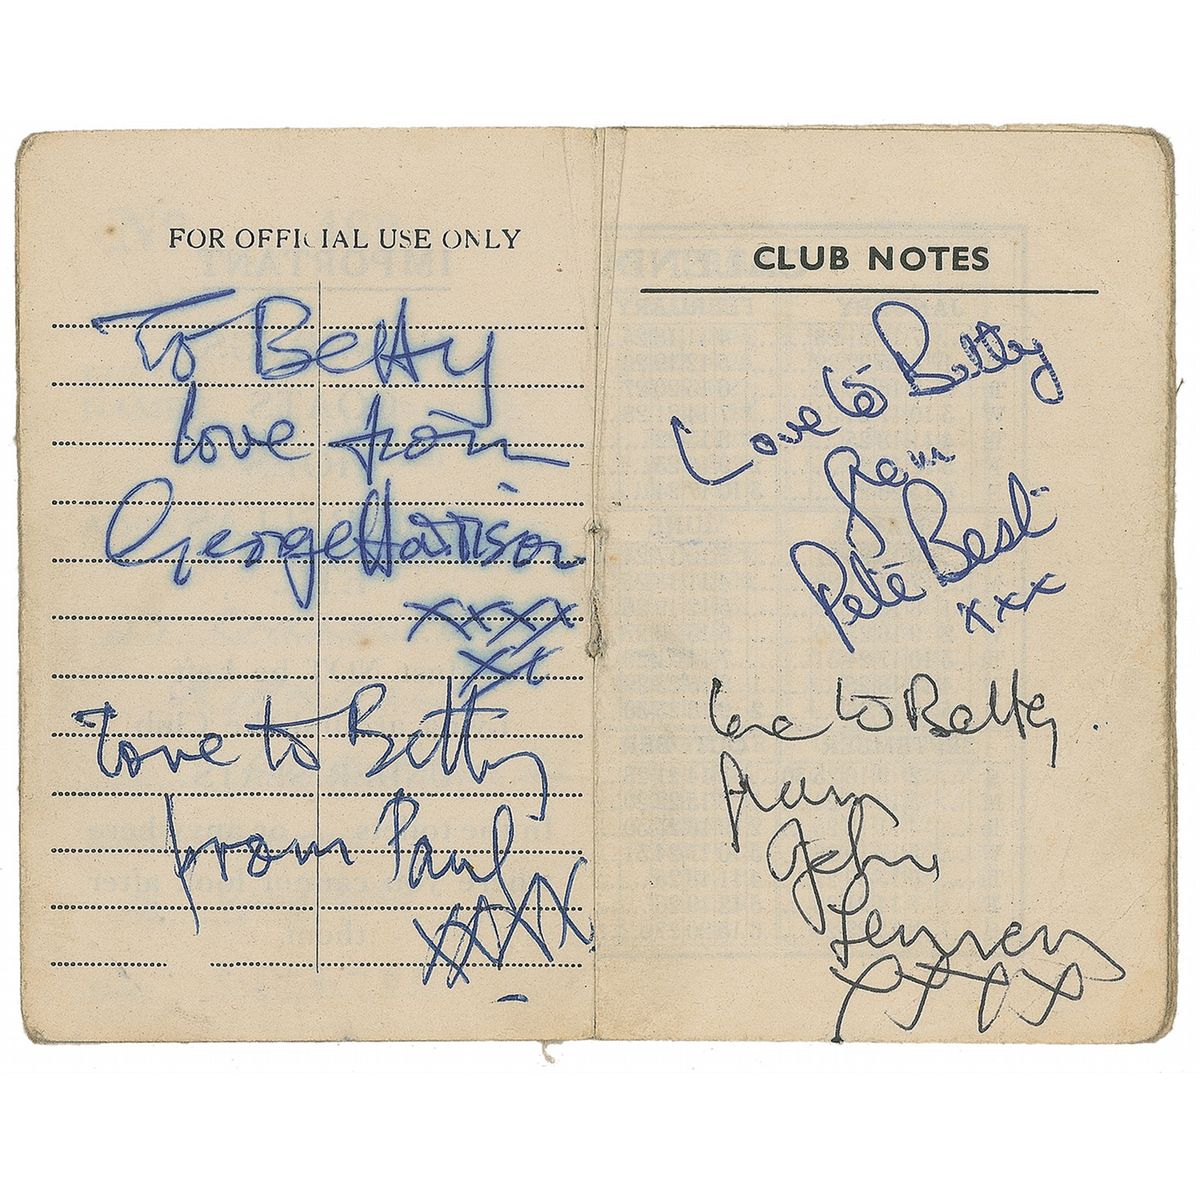 FOR OFFICIAL USE ONLY
To Betty
love from
George Harrison
xxxx
xx
love to Betty
from Paul
XXXX
CLUB NOTES
Love to Betty
from
Pete Best
xxx
love to Betty
from
John
Lennon
XXXX